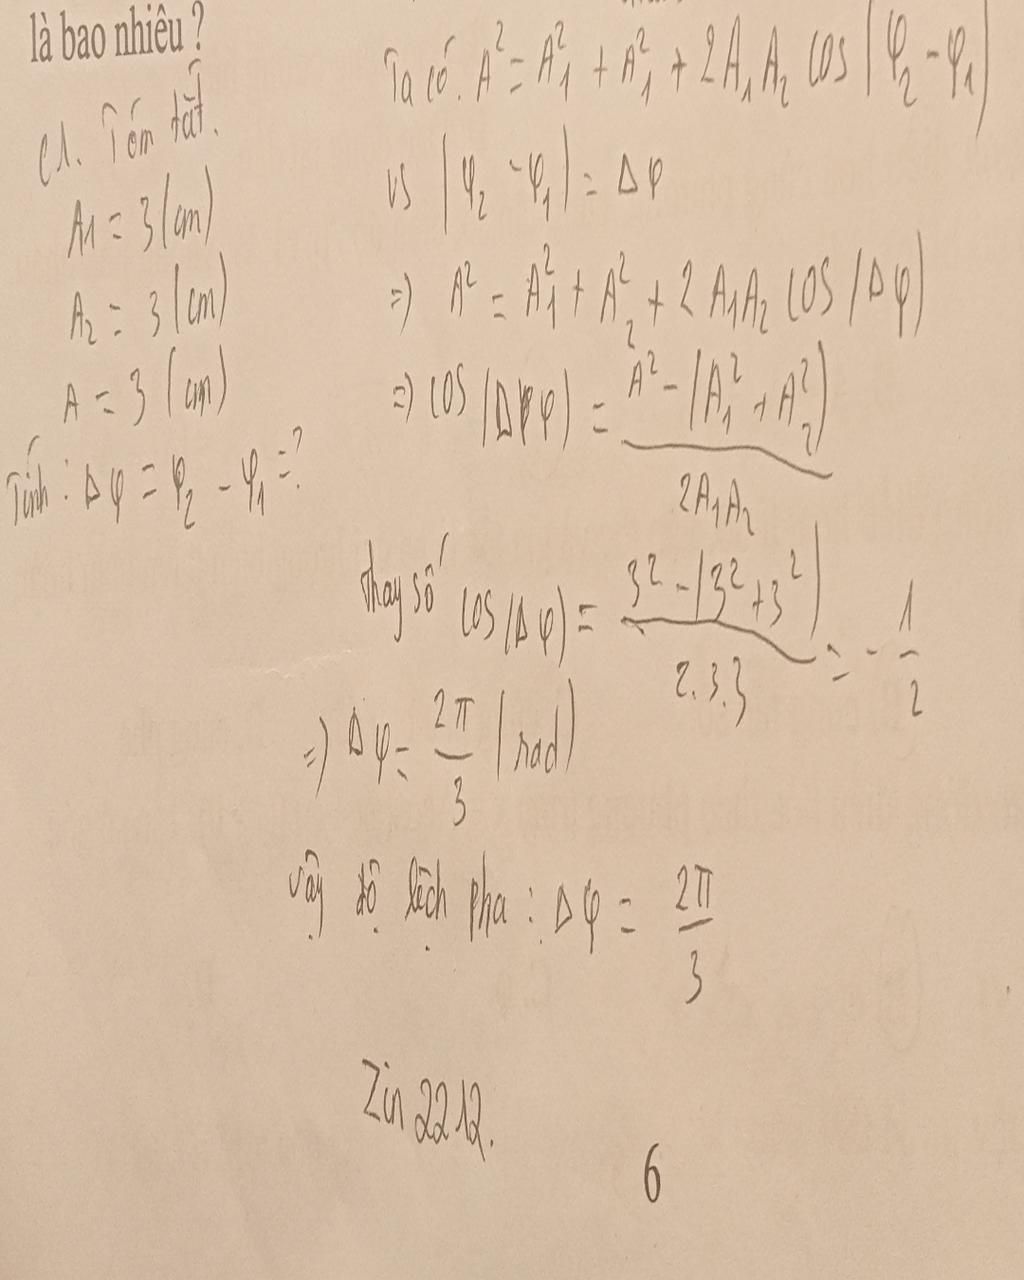 là bao nhiêu ?
C1. Tóm tắt.
A1 = 3 (cm)
A₂ = 3 (cm)
A = 3 (cm)
Tính : Δφ = φ₂ - φ₁ = ?
Ta có. A² = A₁² + A₁² + 2A₁A₂ cos (φ₂ - φ₁)
vs |φ₂ - φ₁| = Δφ
=) A² = A₁² + A₂² + 2A₁A₂ cos (Δφ)
=) cos (Δφ) = A² - (A₁² + A₂²)
2A₁A₂
thay số cos (Δφ) = 3² - (3² + 3²) / 2.3.3 = - 1/2
=) Δφ = 2π/3 (rad)
vậy độ lệch pha : Δφ = 2π/3
Zin 2212.
6